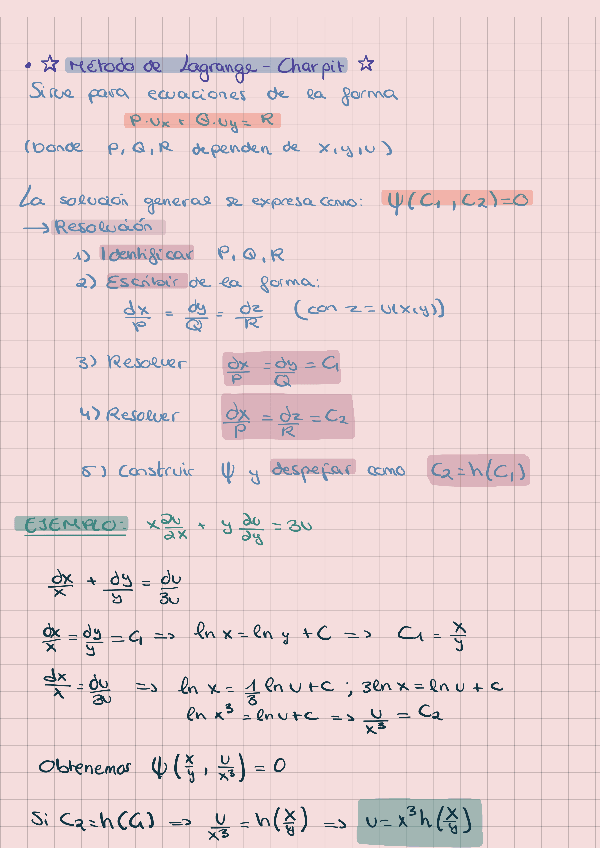 • ☆ Método de Lagrange - Charpit ☆
Sirve para ecuaciones de la forma
P·ux + Q·uy = R
(Donde P, Q, R dependen de x, y, u)
La solución general se expresa como: Ψ(C₁, C₂)=0
→ Resolución
1) Identificar P, Q, R
2) Escribir de la forma:
dx/P = dy/Q = dz/R (con z = u(x,y))
3) Resolver dx/P = dy/Q = C₁
4) Resolver dx/P = dz/R = C₂
5) Construir Ψ y despejar como C₂ = h(C₁)
EJEMPLO: x ∂u/∂x + y ∂u/∂y = 3u
dx/x + dy/y = du/3u
dx/x = dy/y = C₁ => ln x = ln y + C => C₁ = x/y
dx/x = du/3u => ln x = 1/3 ln u + C ; 3 ln x = ln u + c
ln x³ = ln u + c => u/x³ = C₂
Obtenemos Ψ(x/y, u/x³) = 0
Si C₂ = h(C₁) => u/x³ = h(x/y) => u = x³ h(x/y)